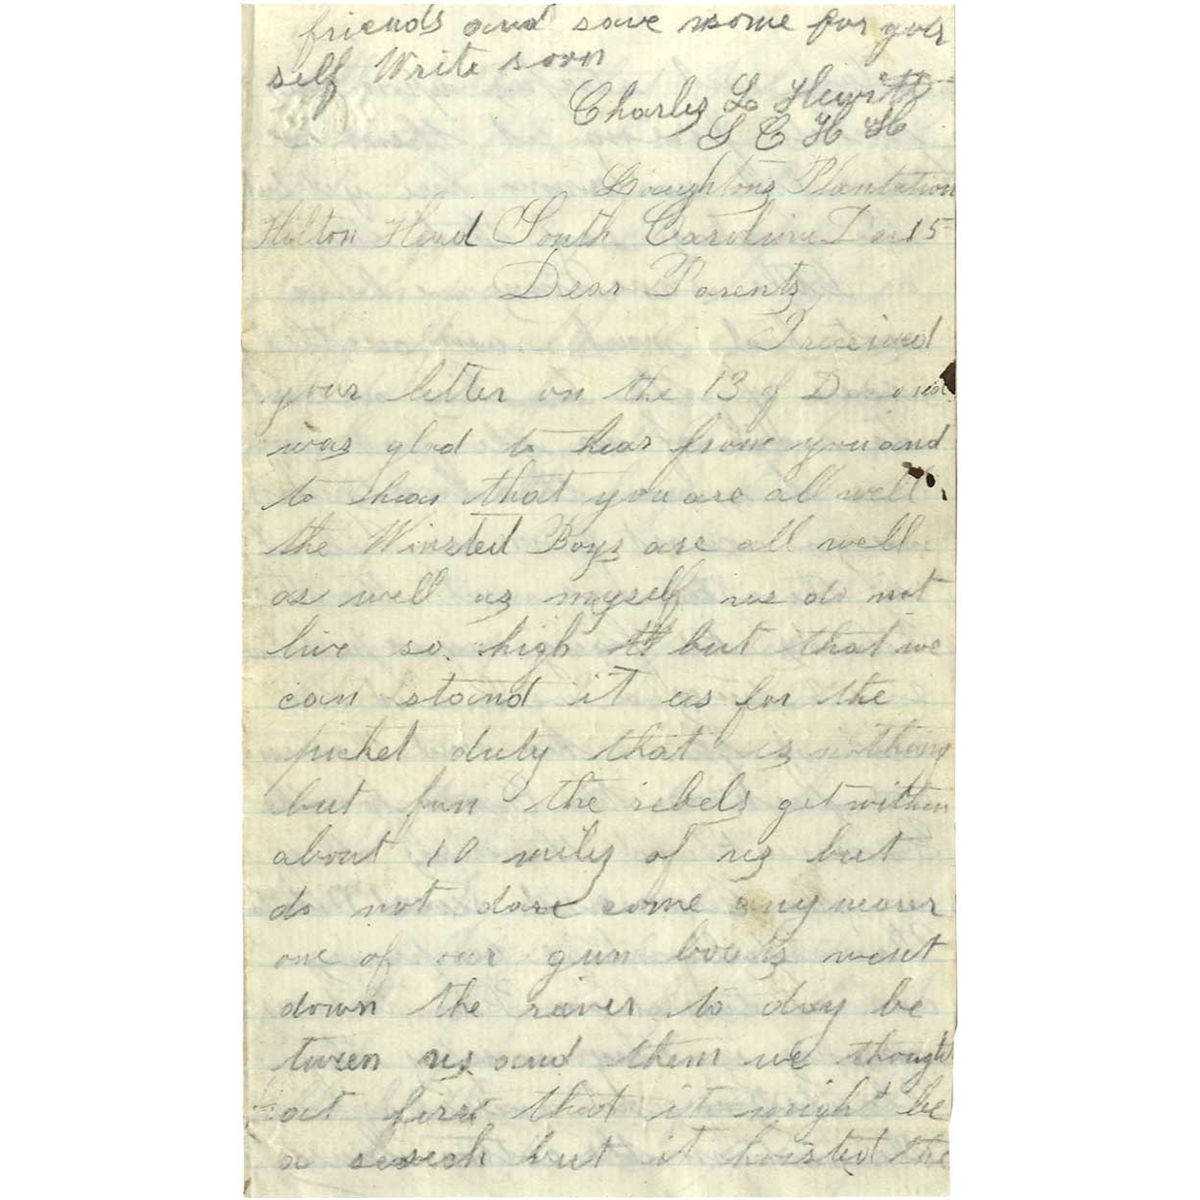 friends and save some for your
self Write soon
Charles L Hewitt
S C H H
Plantation
Hilton Head South Carolina Dec 15
Dear Parents
I received
your letter on the 13 of Dec and
was glad to hear from you and
to hear that you are all well
the Winsted Boys are all well
as well as myself we do not
live so high but that we
can stand it as for the
picket duty that is nothing
but fun the rebels get within
about 10 miles of us but
do not dare come any nearer
one of our gun boats went
down the river to day be
tween us and them we thought
at first that it might be
a sesech but it hoisted the